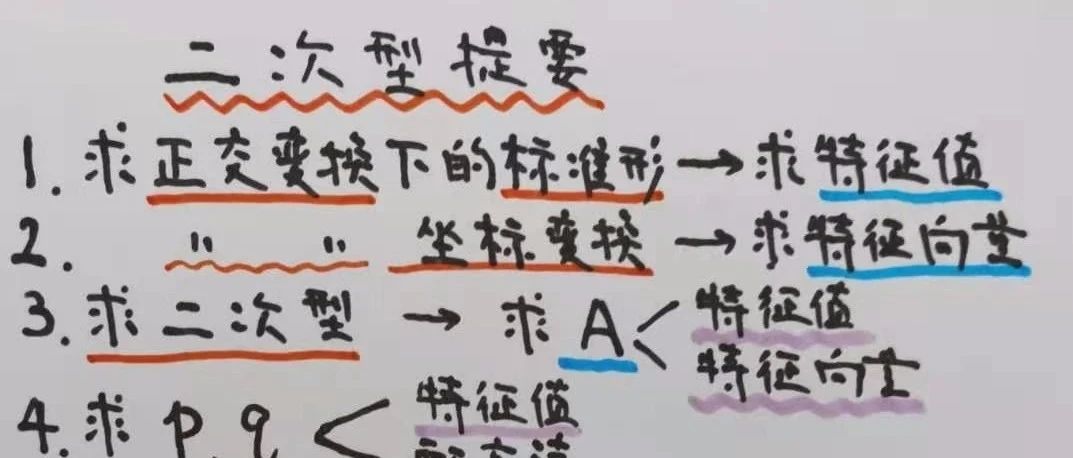 二次型提要
1. 求正交变换下的标准形 → 求特征值
2. " " 坐标变换 → 求特征向量
3. 求二次型 → 求 A < 特征值
特征向量
4. 求 p, q < 特征值
配方法